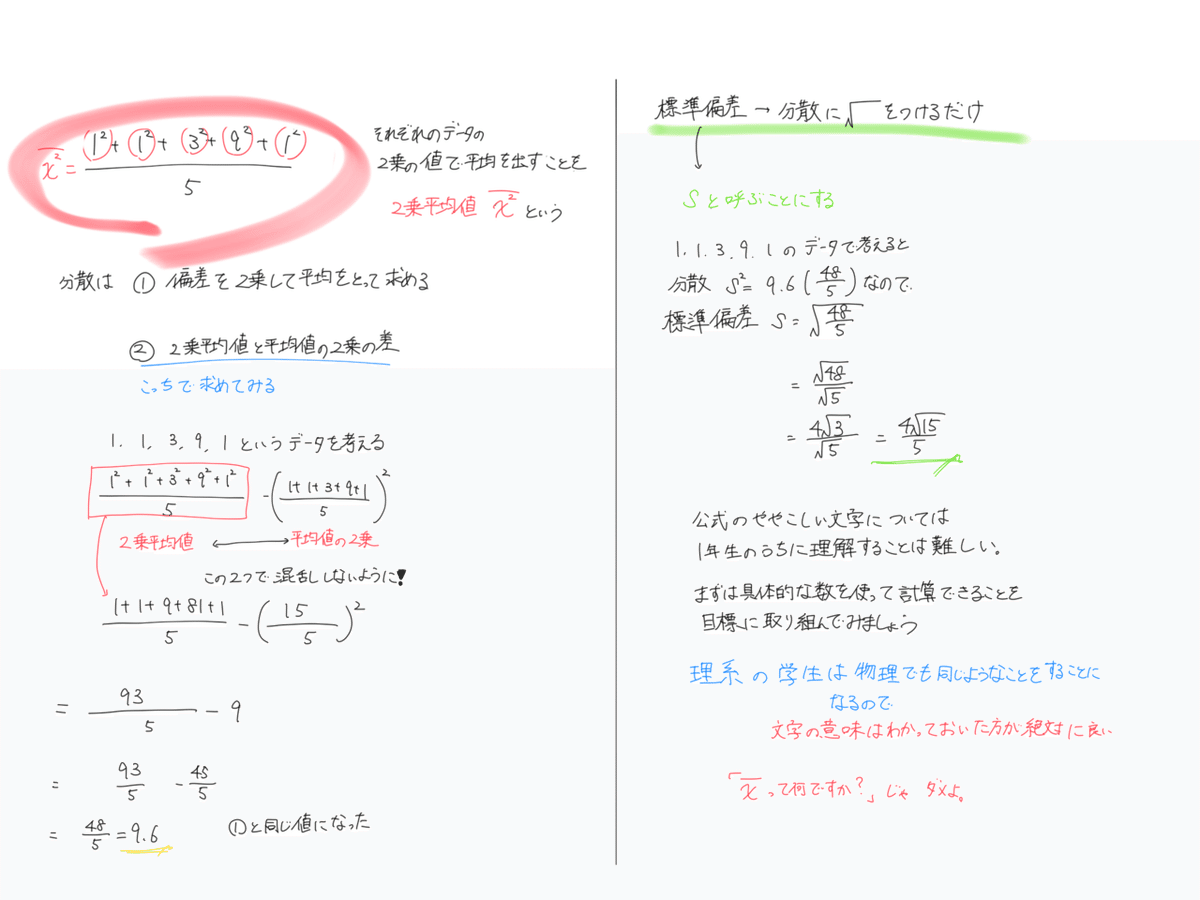 x̄² = (1² + 1² + 3² + 9² + 1²) / 5
それぞれのデータの
2乗の値で平均を出すことを
2乗平均値 x̄² という
分散は ① 偏差を2乗して平均をとって求める
② 2乗平均値と平均値の2乗の差
こっちで求めてみる
1. 1. 3. 9. 1 というデータを考える
(1² + 1² + 3² + 9² + 1²) / 5 - ((1+1+3+9+1) / 5)²
2乗平均値 ⟷ 平均値の2乗
この2つで混乱しないように!
(1+1+9+81+1) / 5 - (15 / 5)²
= 93 / 5 - 9
= 93/5 - 45/5
= 48/5 = 9.6 ①と同じ値になった
標準偏差 → 分散に√をつけるだけ
Sと呼ぶことにする
1. 1. 3. 9. 1 のデータで考えると
分散 S² = 9.6 (48/5) なので、
標準偏差 S = √(48/5)
= √48 / √5
= 4√3 / √5 = 4√15 / 5
公式のややこしい文字については
1年生のうちに理解することは難しい。
まずは具体的な数を使って計算できることを
目標に取り組んでみましょう
理系の学生は物理でも同じようなことをすることに
なるので
文字の意味はわかっておいた方が絶対に良い
「x̄って何ですか?」じゃダメよ。